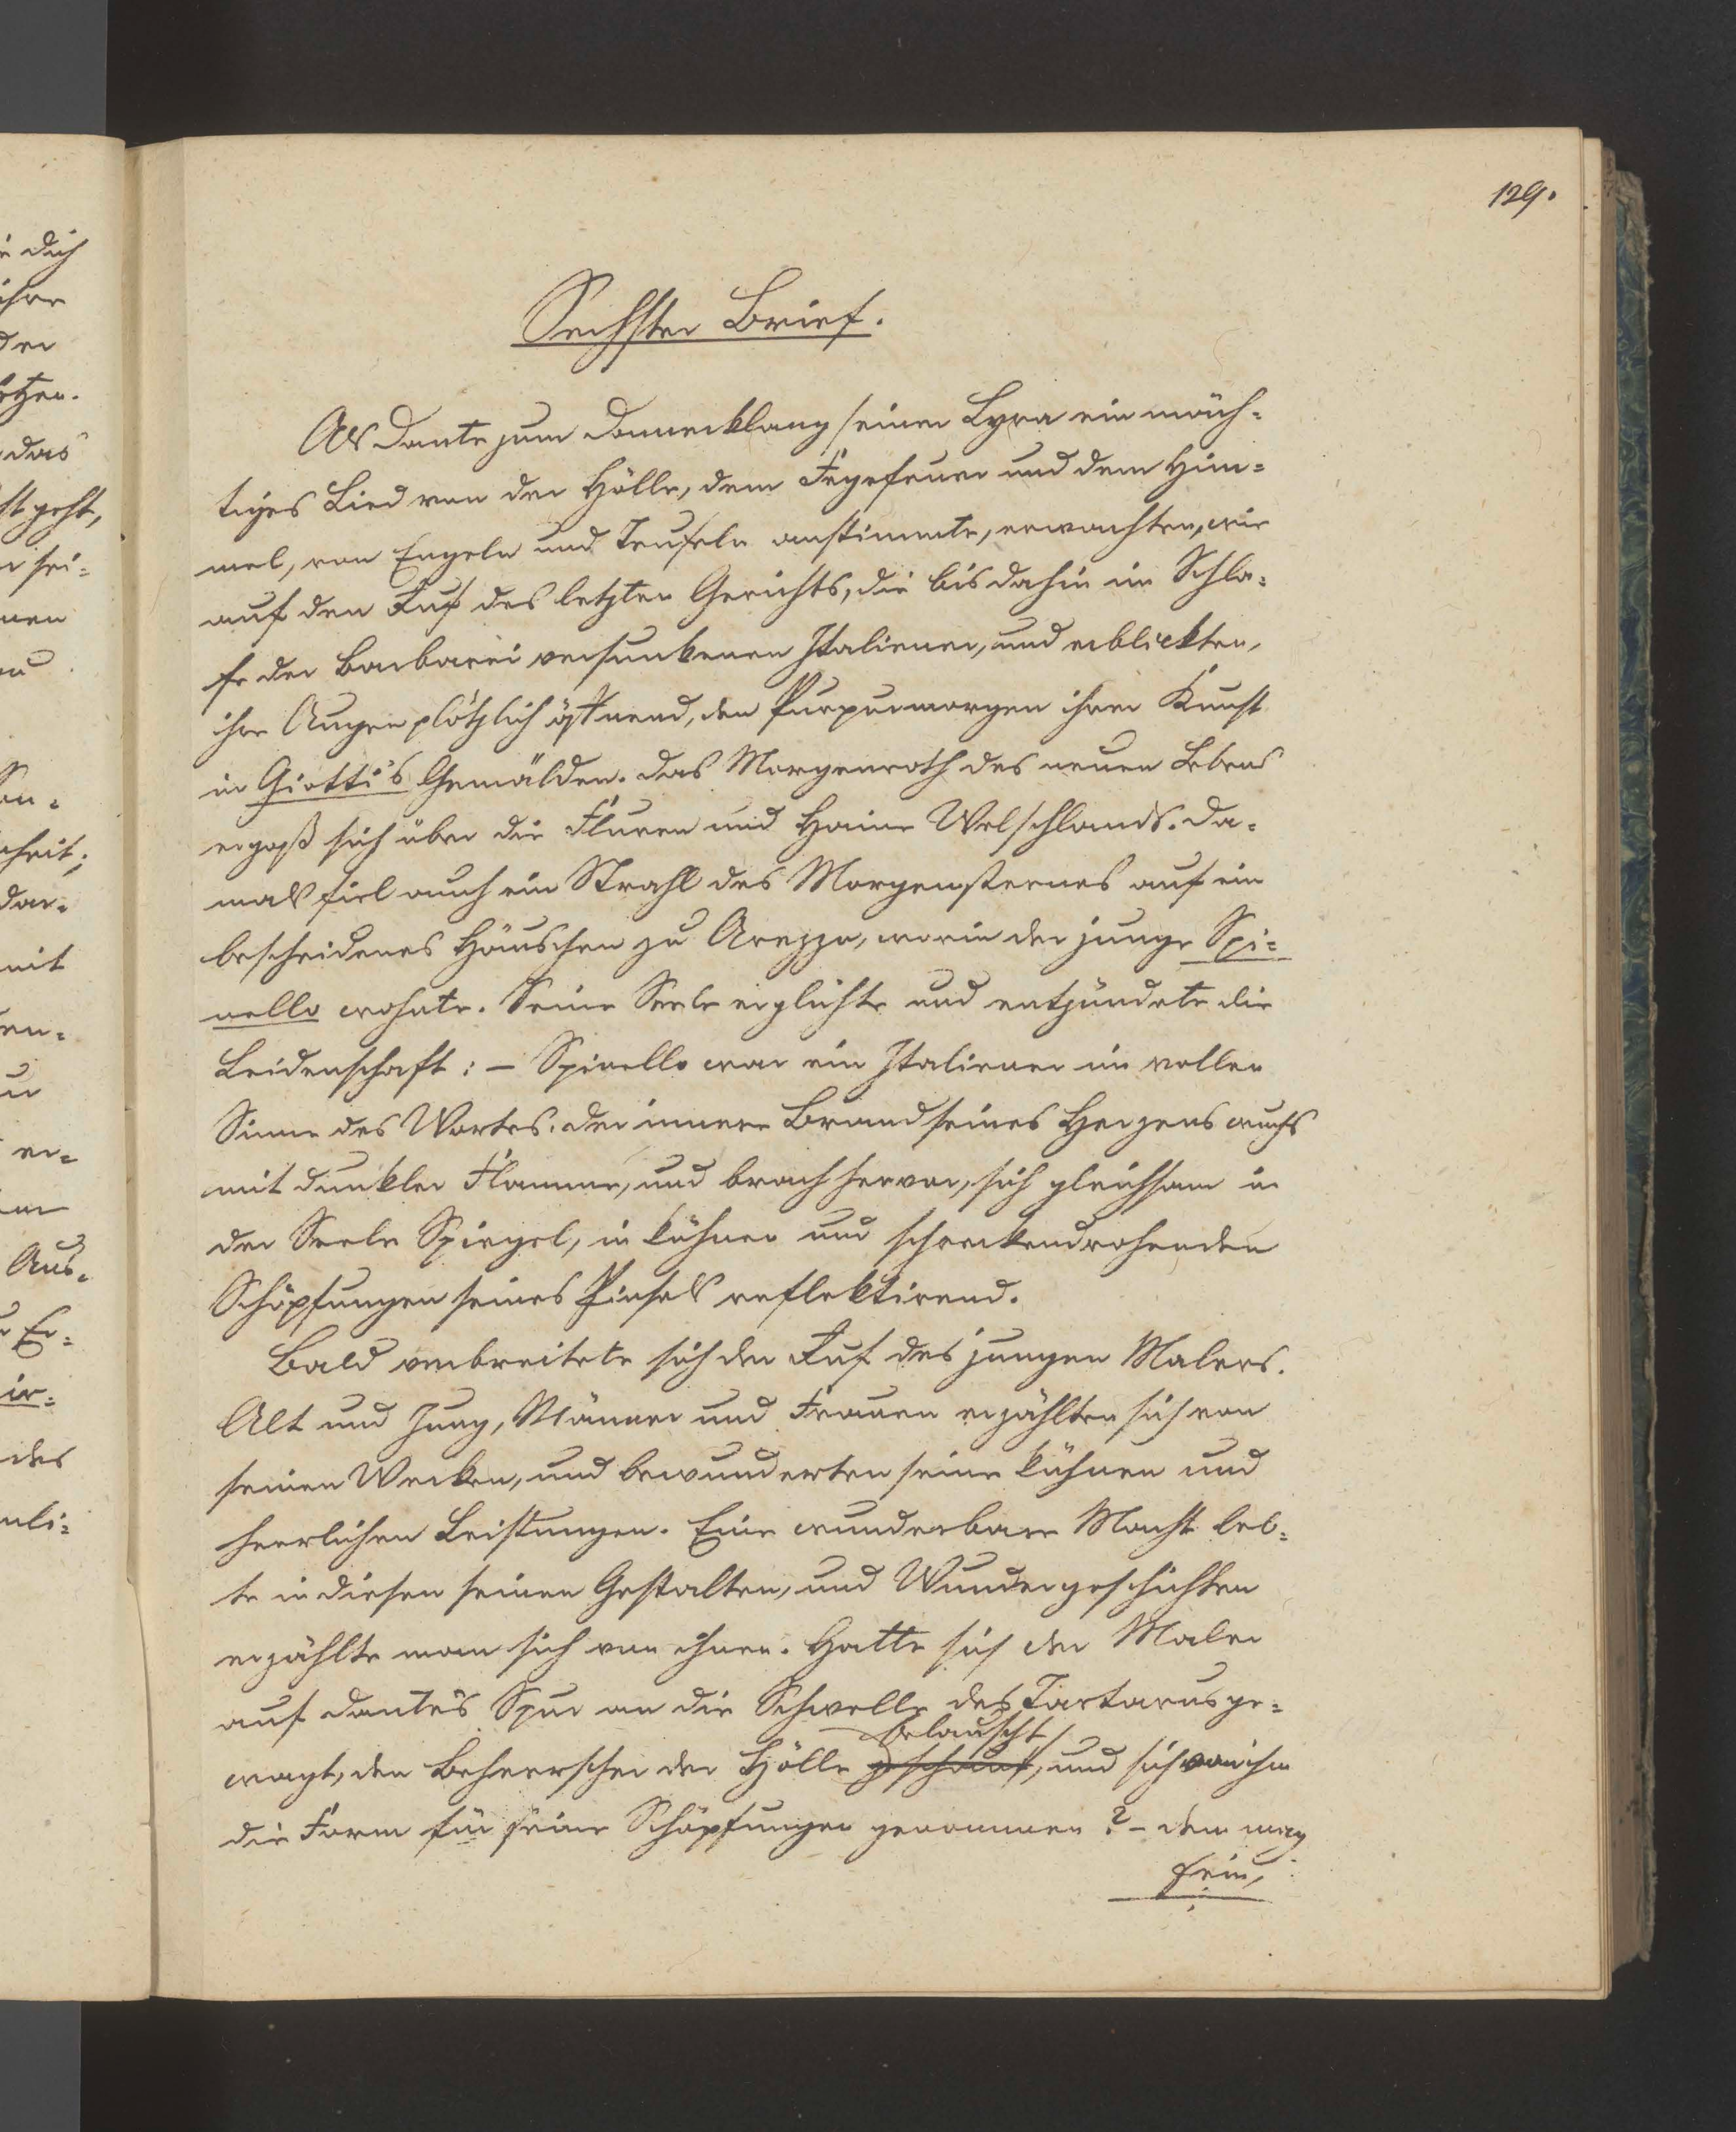 129.
Sechster Brief.
Als Dante zum Donnerklang seiner Lyra ein mäch-
tiges Lied von der Hölle, dem Fegefeuer und dem Him-
mel, von Engeln und Teufeln anstimmte, erwachten, wie
auf den Ruf des letzten Gerichts, die bis dahin im Schla-
fe der Barbarei versunkenen Italiener, und erblickten,
ihre Augen plötzlich öffnend, den Purpurmorgen ihrer Kunst
in Giotti's Gemälden. Das Morgenroth des neuen Lebens
ergoß sich über die Fluren und Haine Welschlands. Da-
mals fiel auch ein Strahl des Morgensternes auf ein
bescheidenes Häuschen zu Arezzo, worin der junge Spi-
nello wohnte. Seine Seele erglühte und entzündete die
Leidenschaft: – Spinello war ein Italiener im vollen
Sinne des Wortes. Der innere Brand seines Herzens wuchs
mit dunkler Flamme, und brach hervor, sich gleichsam in
der Seele Spiegel, in kühnen und schreckendrohenden
Schöpfungen seines Pinsels reflektirend.
Bald verbreitete sich der Ruf des jungen Malers.
Alt und Jung, Männer und Frauen erzählten sich von
seinen Werken, und bewunderten seine kühnen und
herrlichen Leistungen. Eine wunderbare Macht leb-
te in diesen seinen Gestalten, und Wundergeschichten
erzählte man sich von ihnen. Hatte sich der Maler
auf Dante's Spur an die Schwelle des Tartarus ge-
belauscht
wagt, den Beherrscher der Hölle geschaut, und sich von ihm
die Form für seine Schöpfungen genommen? – dem mag
sein,
e dich
ihre
der
das
geht,
sei-
nen
dar-
mit
en-
er-
Aus-
Er-
ir-
des